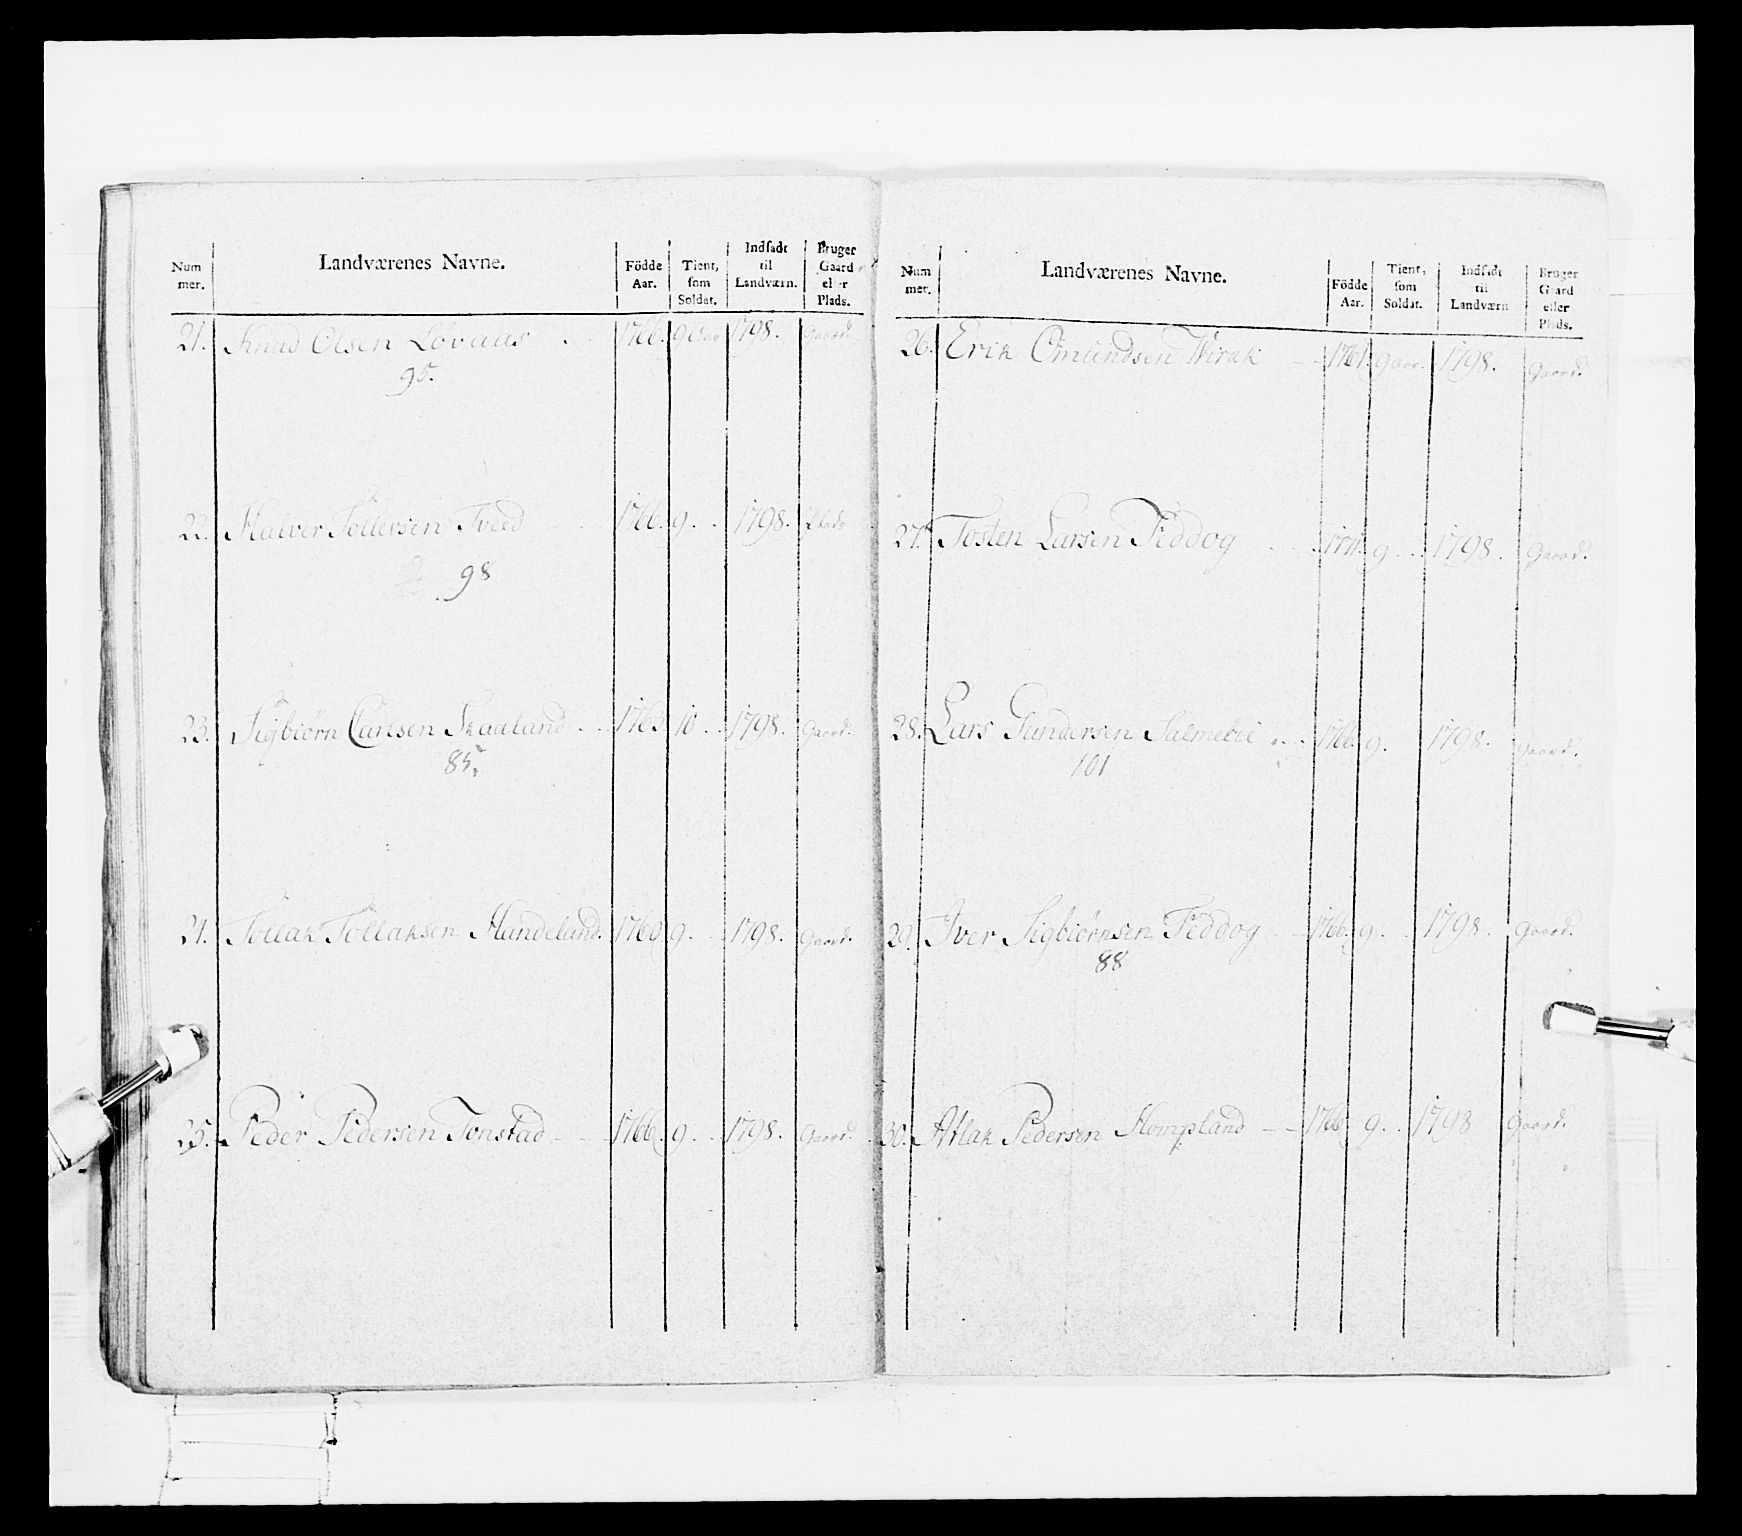 Num mer. | Landværenes Navne. | Födde Aar. | Tient, som Soldat. | Indsadt til Landværn. | Bruger Gaard eller Plads.
21. Knud Olsen Lövaas 1766. 9 Aar 1798. Gaard.
95.
22. Halver Tollevsen Tveed 1766. 9. 1798.
98
23. Sigbiörn Carlsen Skaaland 10 1798. Gaard.
85.
24. Tollak Tollaksen Handeland. 1760 9. 1798. Gaard.
25. Peder Pedersen Tonstad 1766. 9. 1798. Gaard.
Num mer. | Landværenes Navne. | Födde Aar. | Tient, som Soldat. | Indsadt til Landværn | Bruger Gaard eller Plads.
26. Erik Omundsen Virak 1761. 9 Aar. 1798. Gaard.
27. Tosten Larsen Feddog 1771. 9 1798. Gaard.
28. Lars Gundersen Salmelie 1766. 9. 1798. Gaard.
101
29. Iver Sigbiörnsen Feddog 1766. 9. 1798. Gaard.
88
30. Atlak Pedersen Hompland 1766. 9. 1798 Gaard.